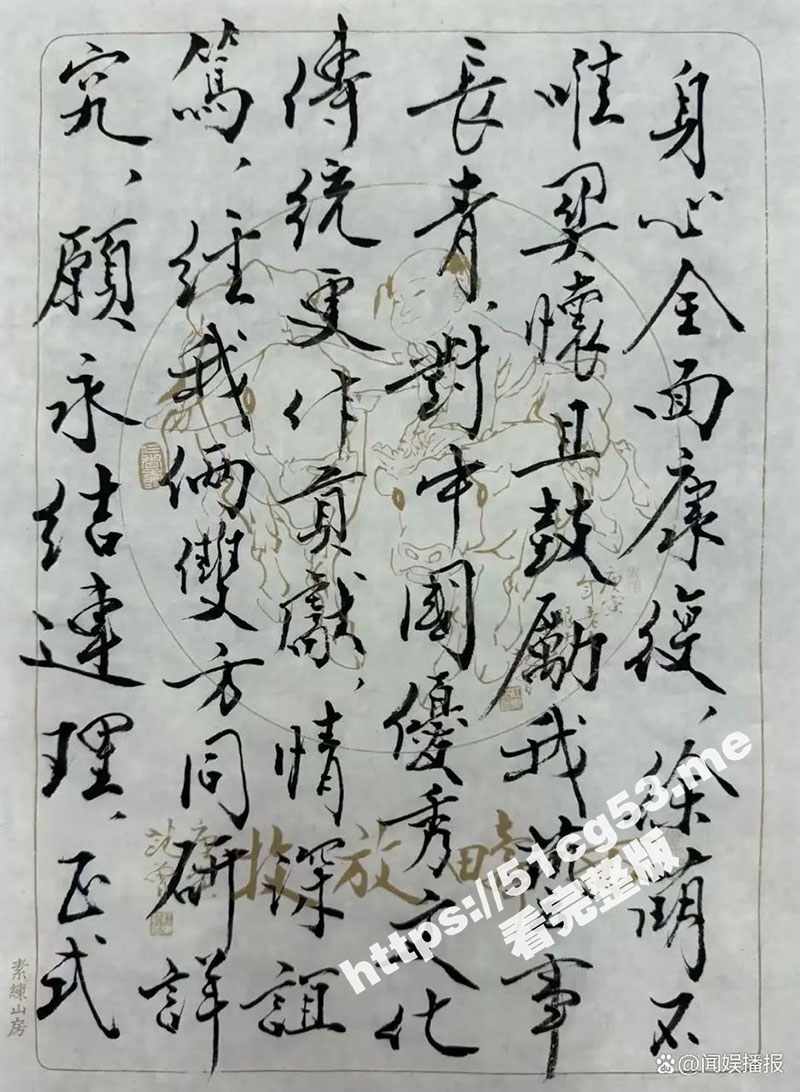 身心全面康復、徐萌不
唯關懷且鼓勵我藝事
長青、對中國優秀文化
傳統更作貢獻、情深誼
篤、經我倆雙方同研詳
究、願永結連理、正式
素練山房
https://51cg53.me
看完整版
闻娱播报